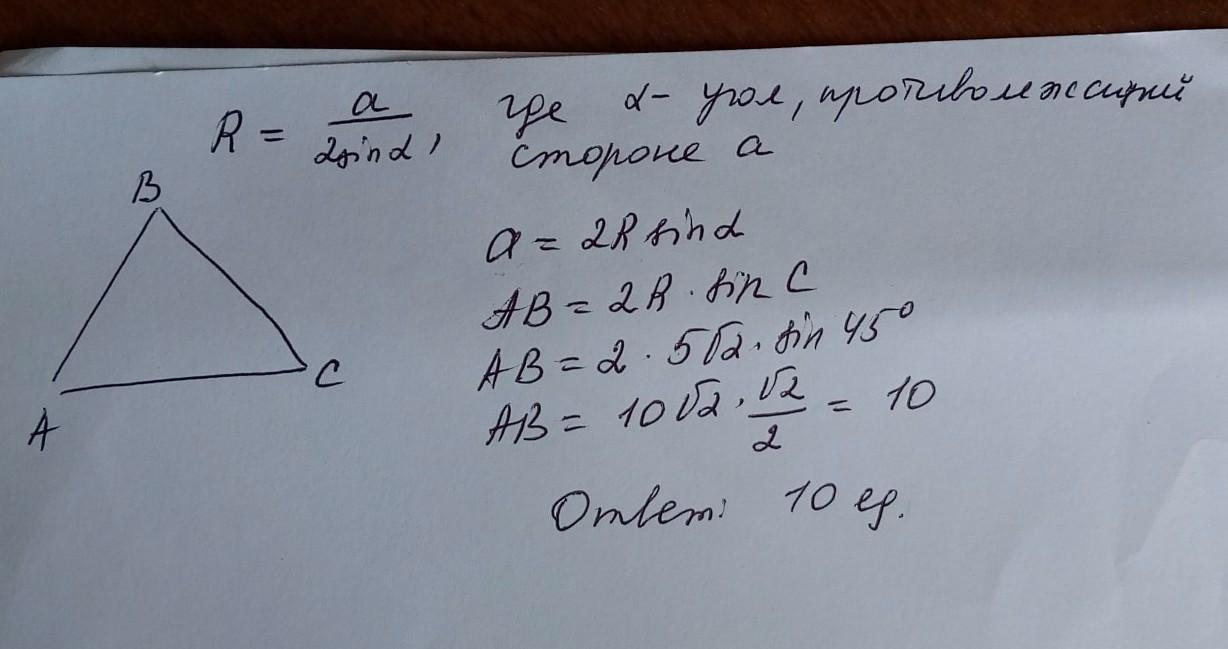 R = a / 2sinα, где α - угол, противолежащий
стороне a
B
a = 2R sinα
AB = 2R · sin C
AB = 2 · 5√2 · sin 45°
C
AB = 10√2 · √2 / 2 = 10
A
Ответ: 10 ед.